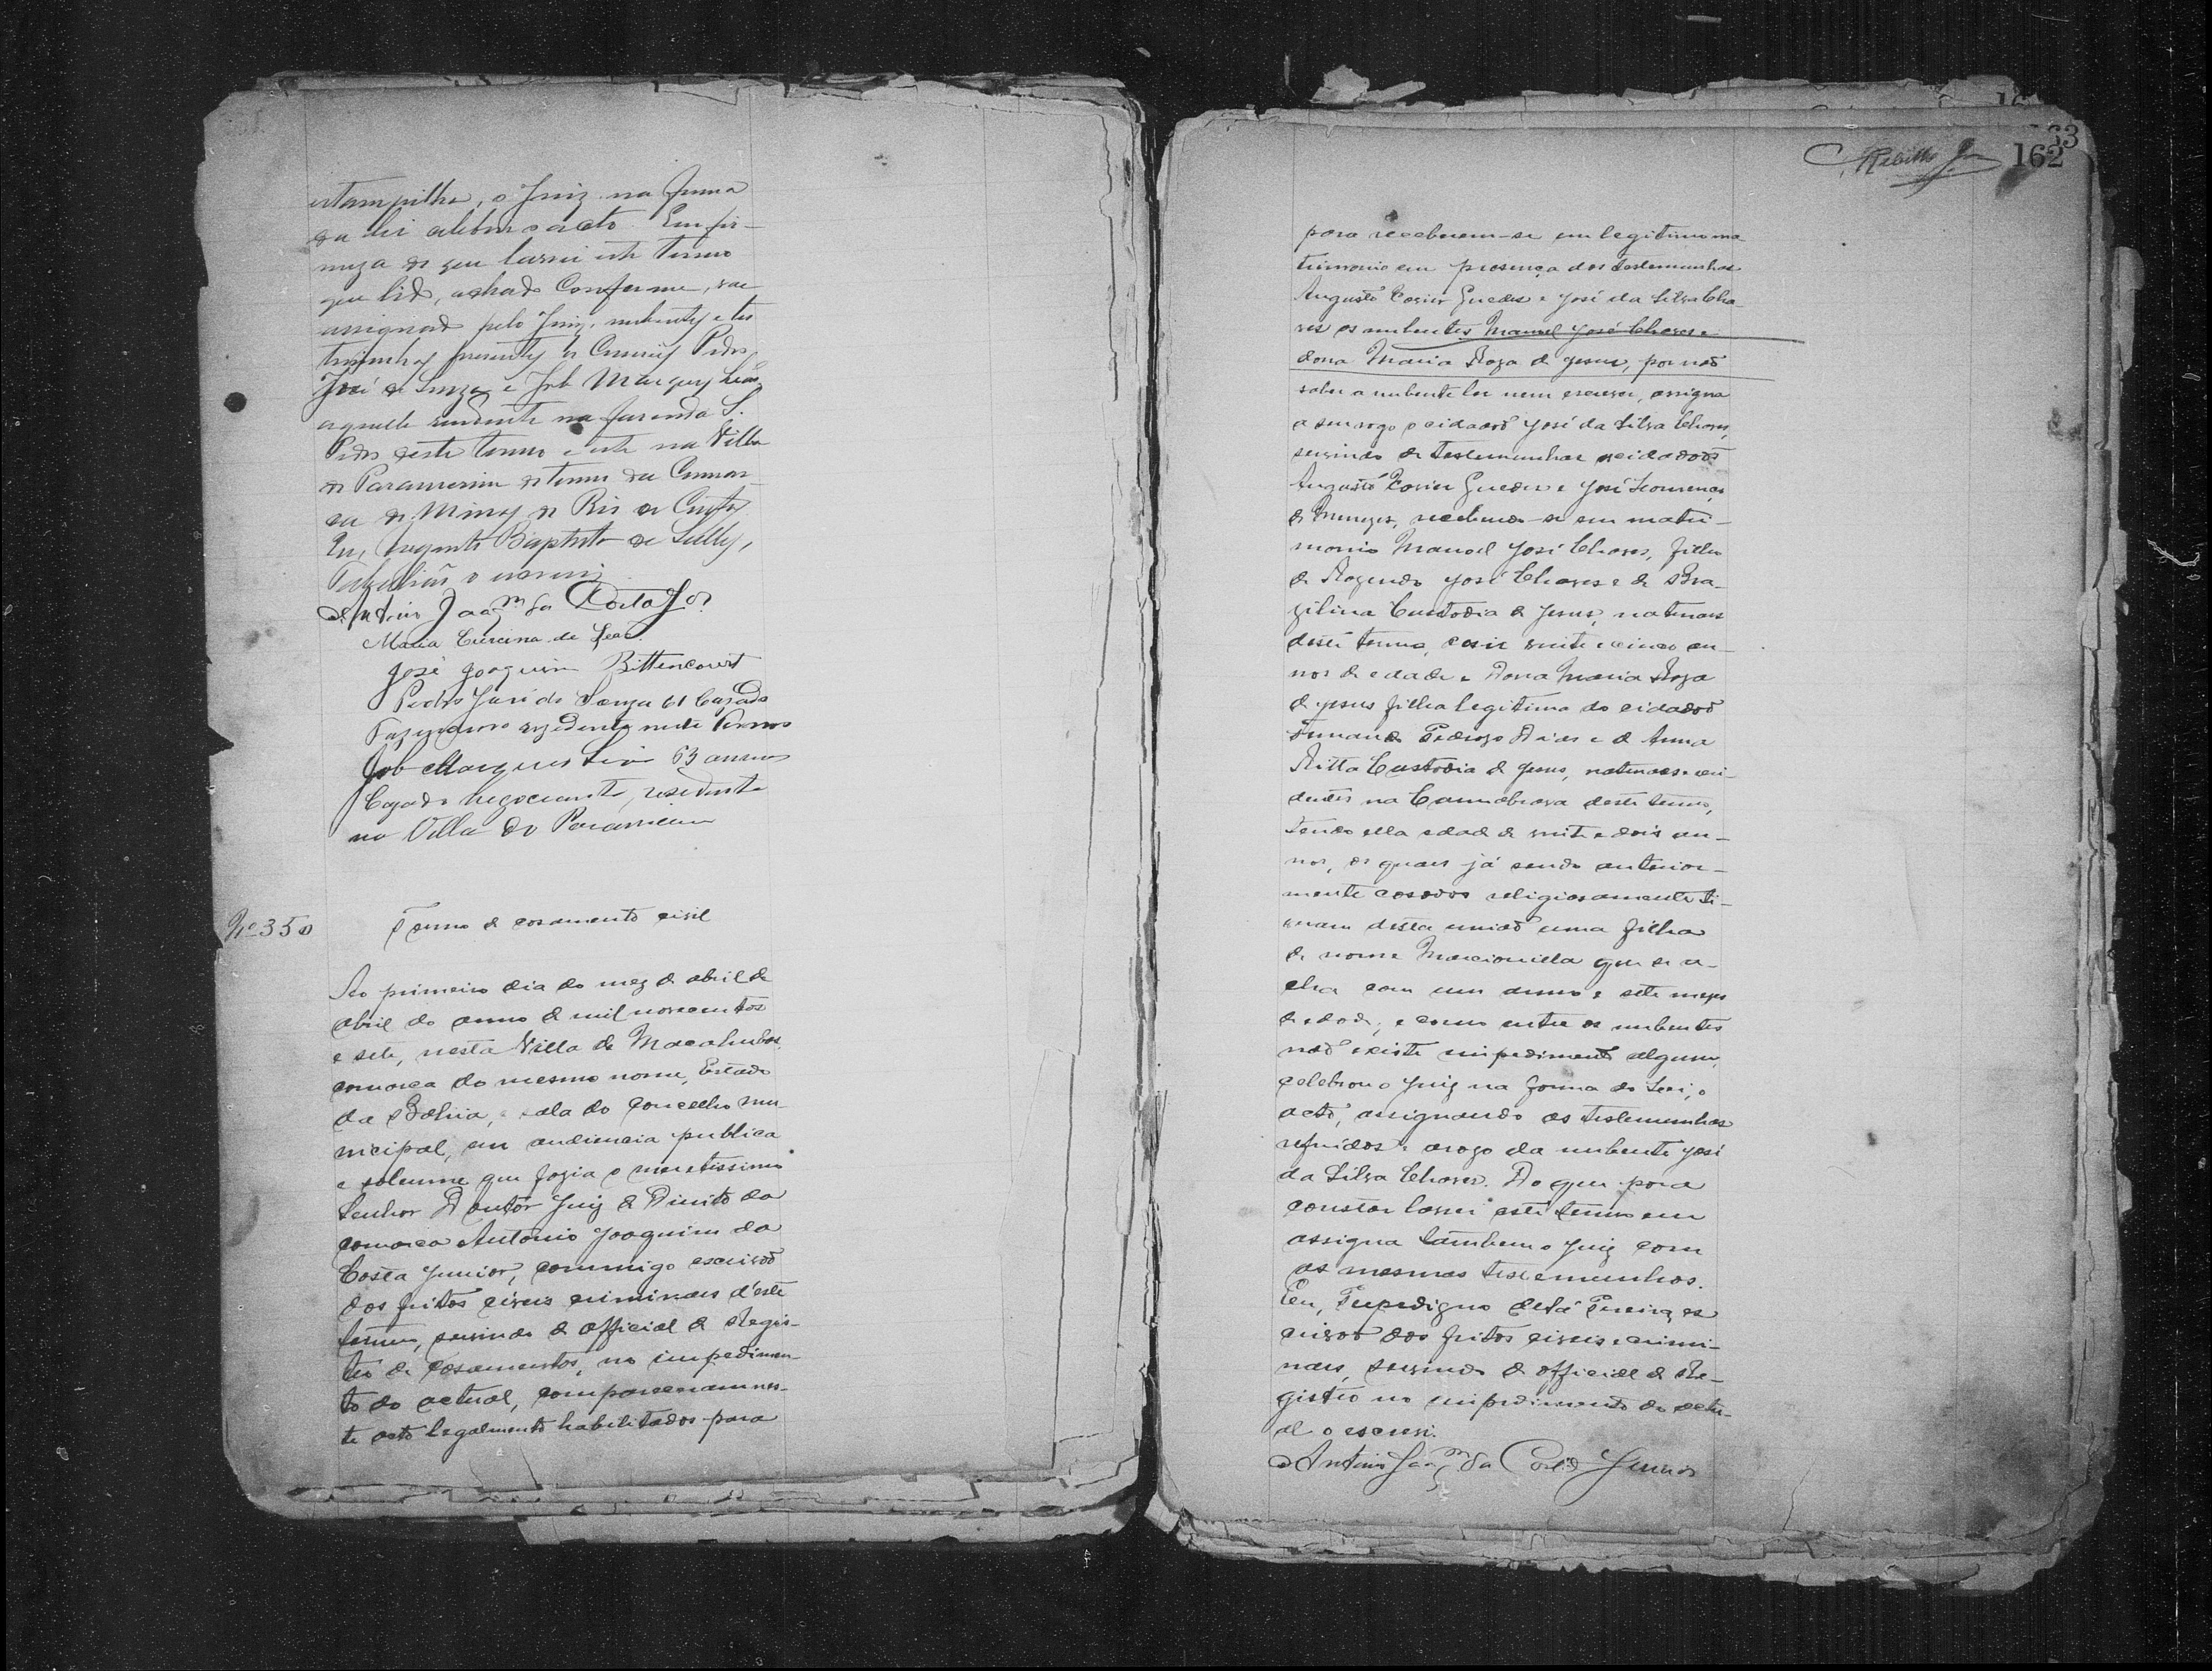 estampilha, o Juiz na forma
da lei celebrou o acto. Em fir-
meza do que lavrei este termo
que lido, achado conforme, vae
assignado pelo Juiz, nubentes e tes
temunhas presentes os Cidadãos Pedro
José de Souza e Job Marques Leão
aquelle residente na fazenda S.
Pedro deste termo e este na Villa
de Paramerim do termo da Comar-
ca de Minas do Rio de Contas
Eu, Baptista de
Tabelião o escrevi
Antonio Joaqm da Costa Jor
Maria Cursina de Leão
José Joaquim Bittencourt
Pedro José de Souza 61 Cazado
Fazendeiro rezidente neste Termo
Job Marques Leão 63 annos
Cazado negociante, residente
na Villa do Paramerim
No 350
Termo de casamento civil
Ao primeiro dia do mez de abril de
abril do anno de mil novecentos
e sete, nesta Villa de Macahubas,
comarca do mesmo nome, Estado
da Bahia, sala do Concelho mu-
nicipal, em audiencia publica
e solemne que fazia o meretissimo
Senhor Doutor Juiz de Direito da
comarca Antonio Joaquim da
Costa Junior, commigo escrivaõ
dos feitos civeis criminaes d'este
termo, servindo de official de Regis-
tro de Casamentos, no impedimen-
to do actual, compareceram nes-
te acto legalmente habilitados para
162
para receberem-se em legitimo ma-
trimonio em presença das testemunhas
Augusto Xavier Guedes e José da Silva Cha-
ves os nubentes Manoel José Chaves e
dona Maria Roza de Jesus, por naõ
saber a nubente ler nem escrever, assigna
a seu rogo o cidadaõ José da Silva Chaves,
servindo de testemunhas os cidadaõs
Augusto Xavier Guedes e José Lourenço
de Menezes, recebendo-se em matri-
monio Manoel José Chaves, filho
de Rozendo José Chaves e de Bra-
zilina Custodia de Jesus, naturaes
deste termo, com vinte e cinco an-
nos de edade e Dona Maria Roza
de Jesus filha legitima do cidadaõ
Fernando Pedrozo Dias e de Anna
Ritta Custodia de Jesus, naturaes e resi-
dentes na Cannabrava deste termo,
tendo ella edade de vinte e dois an-
nos, os quaes já sendo anterior-
mente casados religiosamente ti-
veram desta uniaõ uma filha
de nome Marcionilla que se a-
cha com um anno e sete mezes
de edade; e como entre os nubentes
naõ existe impedimento algum,
celebrou o Juiz na forma da Lei, o
acto, assignando as testemunhas
referidas e a rogo da nubente José
da Silva Chaves. Do que para
constar lavrei este termo em
assigna tambem o Juiz com
as mesmas testemunhas.
Eu, Pereira es
crivaõ dos feitos civeis e crimi-
naes, servindo de official de Re-
gistro no impedimento do actu-
al o escrevi.
Antonio Joaqm da Costa Junior